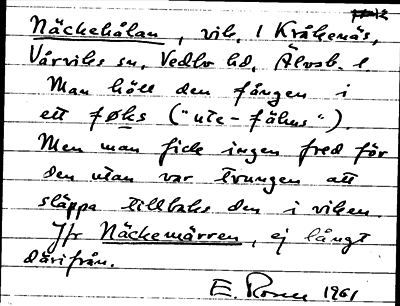 Näckehålan, vik, i Kråkenäs,
Vårviks sn, Vedbo hd, Älvsb. l.
Man höll den fången i
ett føks ("ute-fähus").
Men man fick ingen fred för
den utan var tvungen att
släppa tillbaks den i viken.
Jfr Näckemärren, ej långt
därifrån.
E. 1961